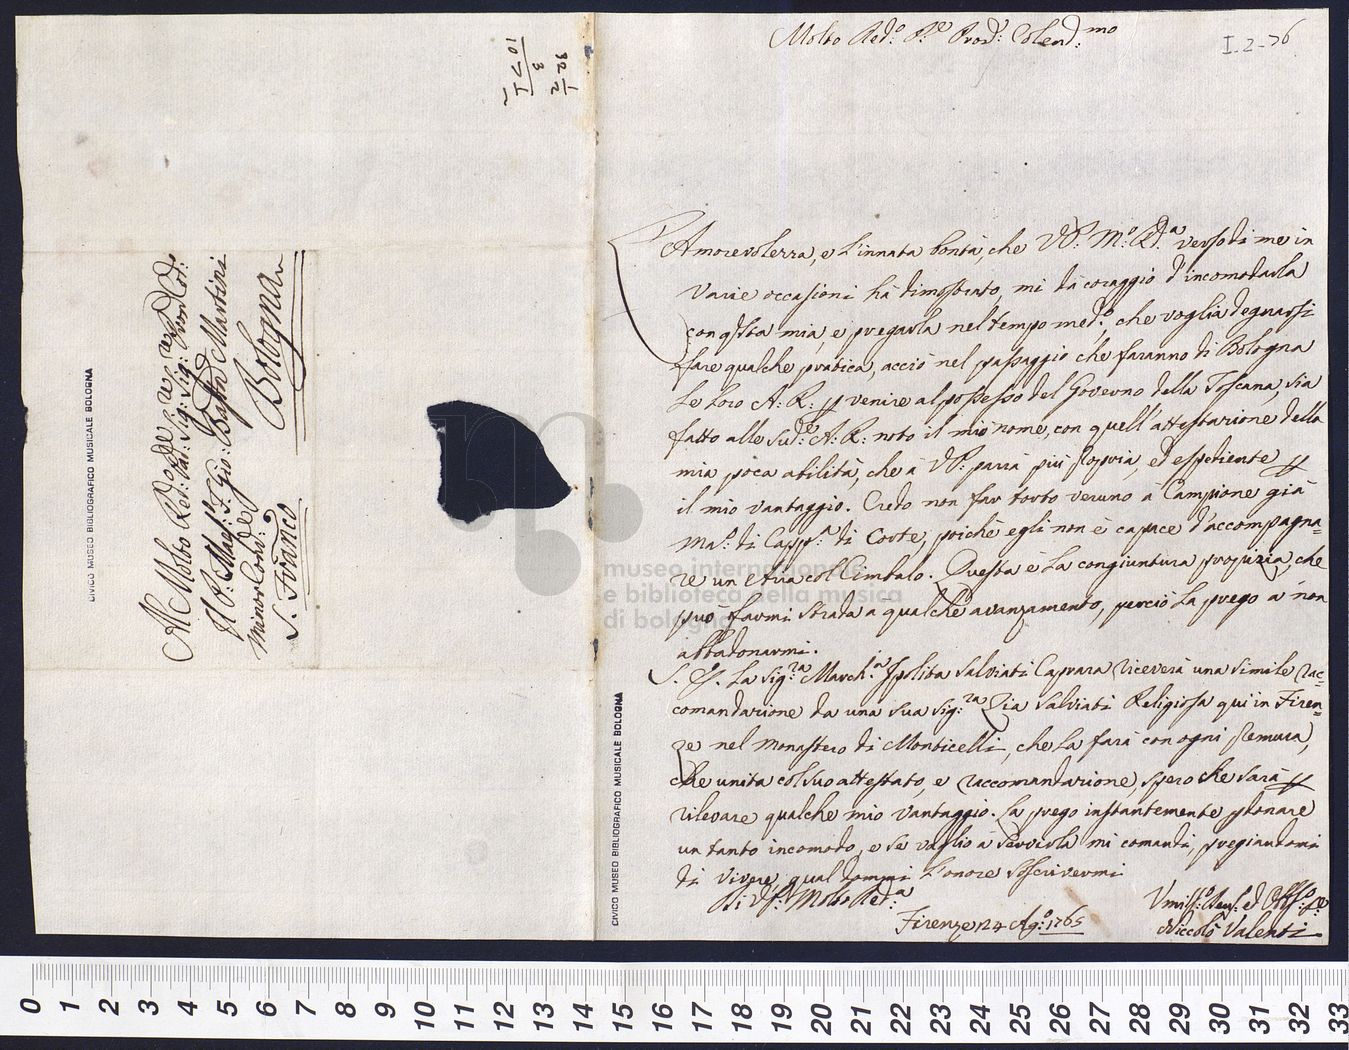 Molto Red.º P.re Pron: Colend:mo
I-2-76
L'Amorevolezza, e l'innata bontà, che VP: M.º Rd.a verso di me in
varie occasioni hà dimostrato, mi dà coraggio d'incomodarla
con qsta mia, e pregarla nel tempo med.º, che voglia degnarsi
fare qualche pratica, acciò nel passaggio che faranno di Bologna
Le Loro A: R: p venire al possesso del Governo della Toscana, sia
fatto alle sud.e A: R: noto il mio nome, con quell'attestazione della
mia poca abilità, che à VP: parrà più propria, ed espediente p
il mio vantaggio. Credo non far torto veruno à Campione già
Ma.º di Capp.a di Corte, poichè egli non è capace d'accompagna=
re un Aria col Cimbalo. Questa è la congiuntura propizia, che
può farmi strada a qualche avanzamento, perciò la prego a non
abbadonarmi.
P. S. La Sig.ra March.a Ipolita Salviati Caprara riceverà una simile rac=
comandazione da una sua Sig.ra Zia Salviati Religiosa qui in Firen=
ze nel Monastero di Monticelli, che la farà con ogni premura,
che unita col suo attestato, e raccomandazione, spero che sarà p
rilevare qualche mio vantaggio. La prego instantemente pdonare
un tanto incomodo, e se vaglio à servirla mi comandi, pregiandomi
di vivere, qual dommi l'onore soscrivermi
Di VP: Molto Red.a
Firenze 24 Ag.º 1765
Umiliss.º Dev.º ed Obb.º Se.re
Niccolò Valenti
Al Molto Red:de Pad:re Sig:re Sig:re Pron Col:
Il P: Maes: F: Gio: Batta Martini
Minor Con:de Bologna
S. Franco
32 1/2
3
107 1/2
CIVICO MUSEO BIBLIOGRAFICO MUSICALE BOLOGNA
CIVICO MUSEO BIBLIOGRAFICO MUSICALE BOLOGNA
museo internazionale
e biblioteca della musica
di bologna
0 1 2 3 4 5 6 7 8 9 10 11 12 13 14 15 16 17 18 19 20 21 22 23 24 25 26 27 28 29 30 31 32 33